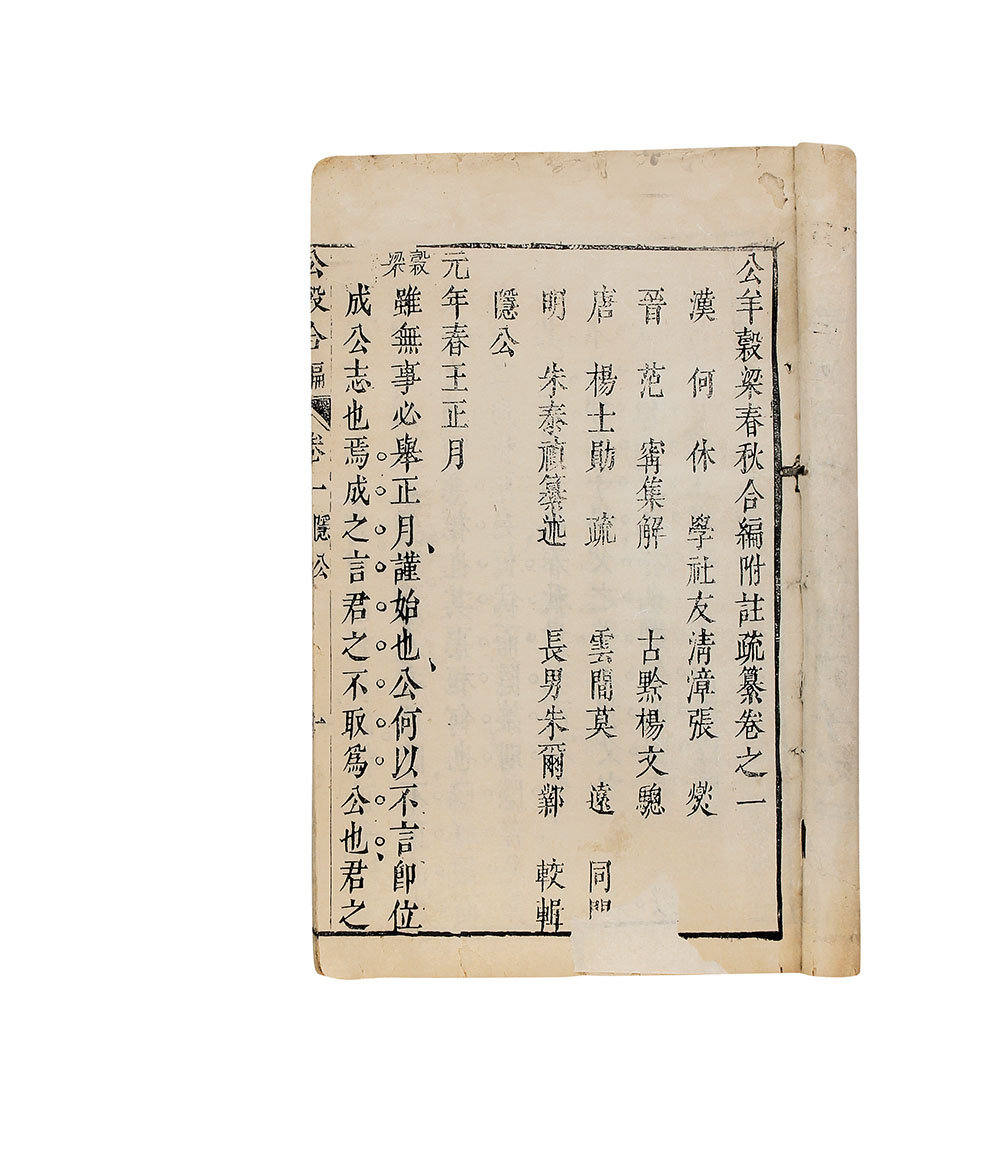 公羊穀梁春秋合編附註疏纂卷之一
漢 何 休 學社友清漳張 爕
晉 范 甯集解 古黔楊文驄
唐 楊士勛 疏 雲間莫 遠 同
明 朱泰禎纂述 長男朱爾鄴 較輯
隱公
元年春王正月
穀梁 雖無事必舉正月謹始也公何以不言卽位
成公志也焉成之言君之不取爲公也君之
公穀合編 卷一 隱公